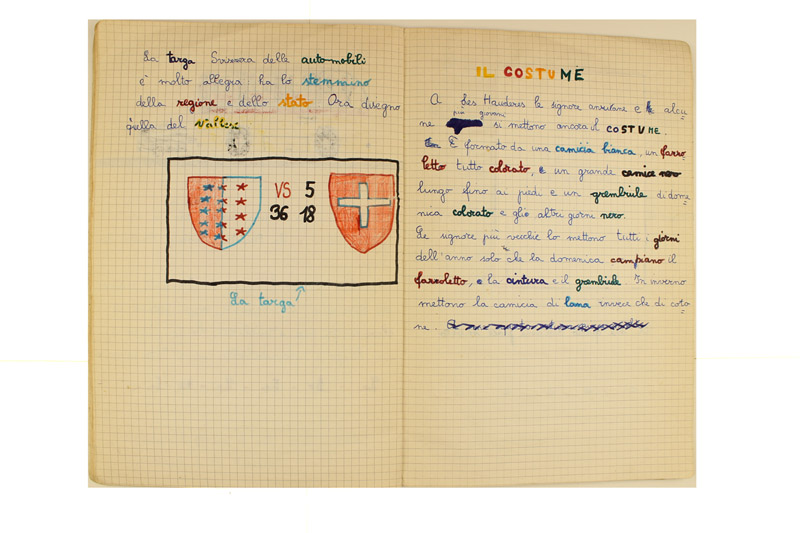 La targa Svizzera delle automobili
è molto allegra: ha lo stemmino
della regione e dello stato. Ora disegno
quella del Vallese
VS 5
36 18
La targa
IL COSTUME
A Les Hauderes le signore anziane e alcu
ne più giovani si mettono ancora il COSTUME.
È formato da una camicia bianca, un fazzo
letto tutto colorato, e un grande camice nero
lungo fino ai piedi e un grembiule di dome
nica colorato e gli altri giorni nero.
Le signore più vecchie lo mettono tutti i giorni
dell'anno solo che la domenica cambiano il
fazzoletto, e la cintura e il grembiule. In inverno
mettono la camicia di lana invece che di coto
ne.